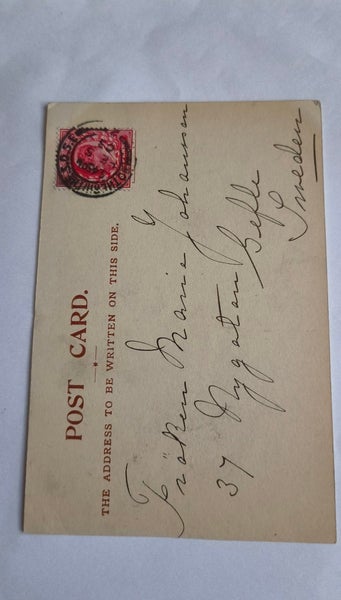 POST CARD.
THE ADDRESS TO BE WRITTEN ON THIS SIDE.
Fröken Maria Johansson
37 Nygatan
Gefle
Sweden